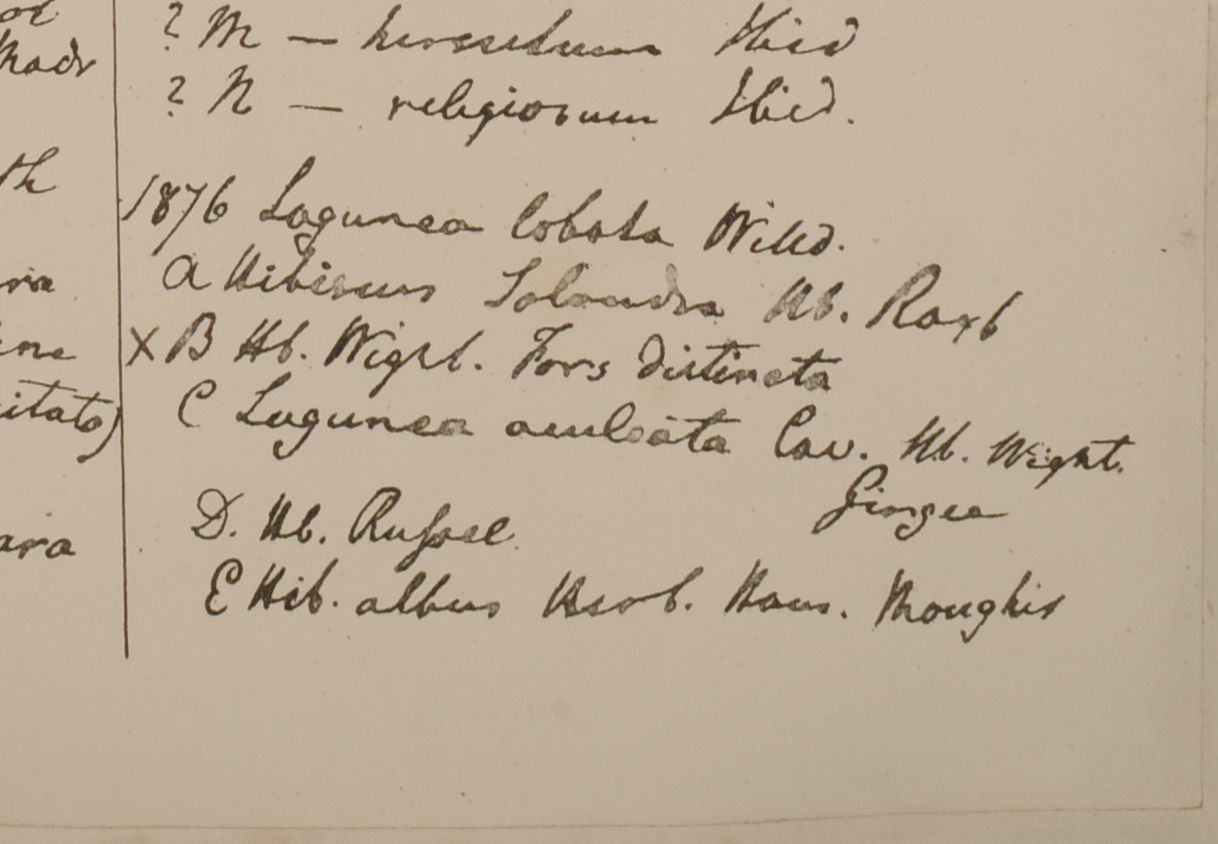 ? M — hirsutum Ibid
? N — religiosum Ibid.
1876 Lagunea lobata Willd.
A Hibiscus Solandra Hb. Roxb
X B Hb. Wight. Fors distincta
C Lagunea aculeata Cav. Hb. Wight.
Gingee
D. Hb. Rufsel
E Hib. albus Herb. Ham. Monghir
Madr
th
ra
ne
itato)
ara